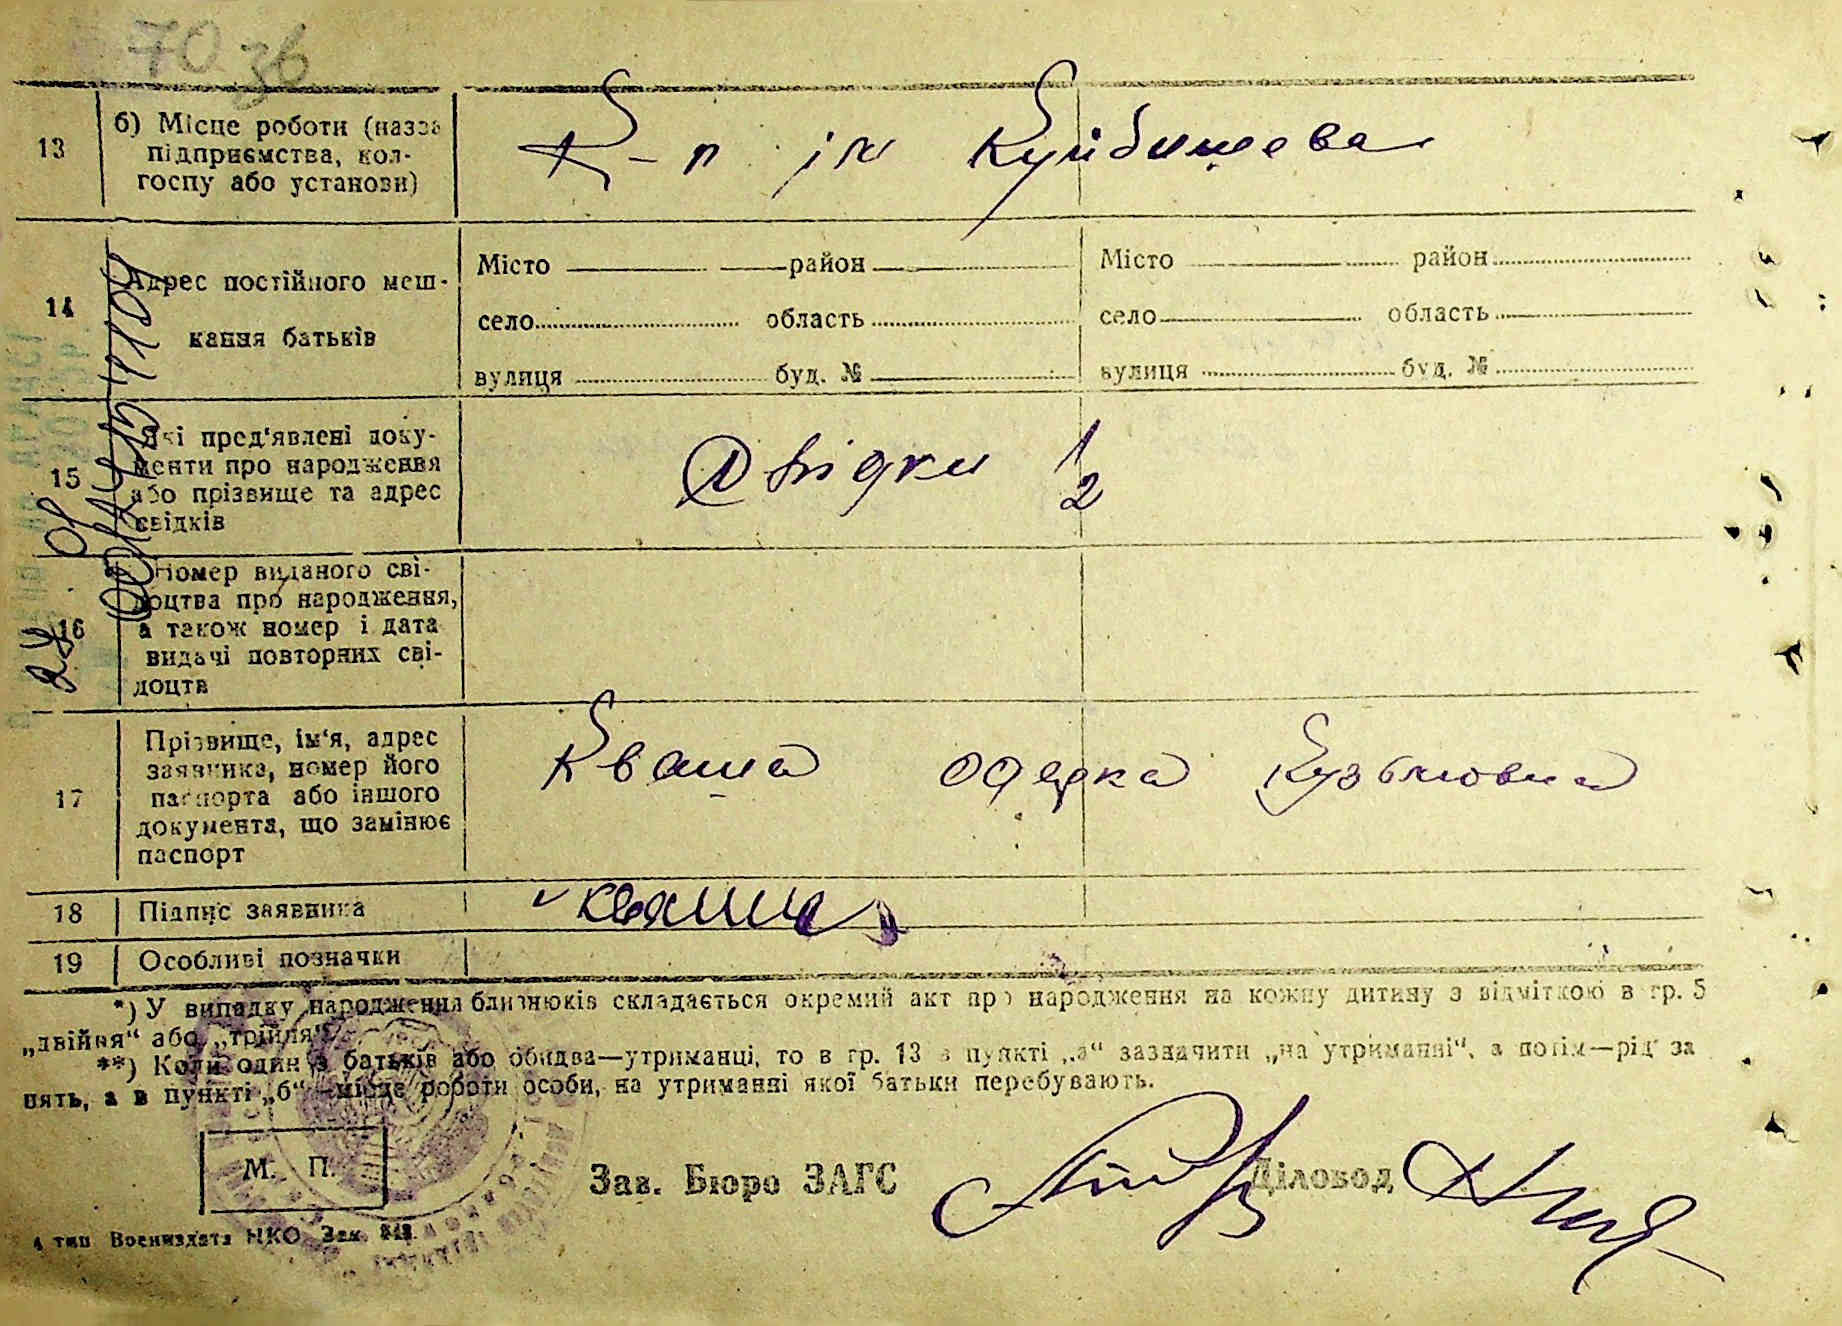 70 36
13 б) Місце роботи (назва
підприємства, кол-
госпу або установи)
К-п ім Куйбишева
14 Адрес постійного меш-
кання батьків
Місто район Місто район
село область село область
вулиця буд. № вулиця буд. №
15 Які пред‘явлені доку-
менти про народження
або прізвище та адрес
свідків
Свідки 1/2
16 Номер виданого сві-
доцтва про народження,
а також номер і дата
видачі повторних сві-
доцтв
17 Прізвище, ім‘я, адрес
заявника, номер його
паспорта або іншого
документа, що замінює
паспорт
Кваша Одарка Кузьмовна
18 Підпис заявника
Кваша
19 Особливі позначки
*) У випадку народження близнюків складається окремий акт про народження на кожну дитину з відміткою в гр. 5
„двійня“ або „трійня“.
**) Коли один з батьків або обидва—утриманці, то в гр. 13 в пункті „а“ зазначити „на утриманні“, а потім—рід за
нять, а в пункті „б“—місце роботи особи, на утриманні якої батьки перебувають.
М. П.
Зав. Бюро ЗАГС Діловод
4 тип Воениздата НКО Зак.